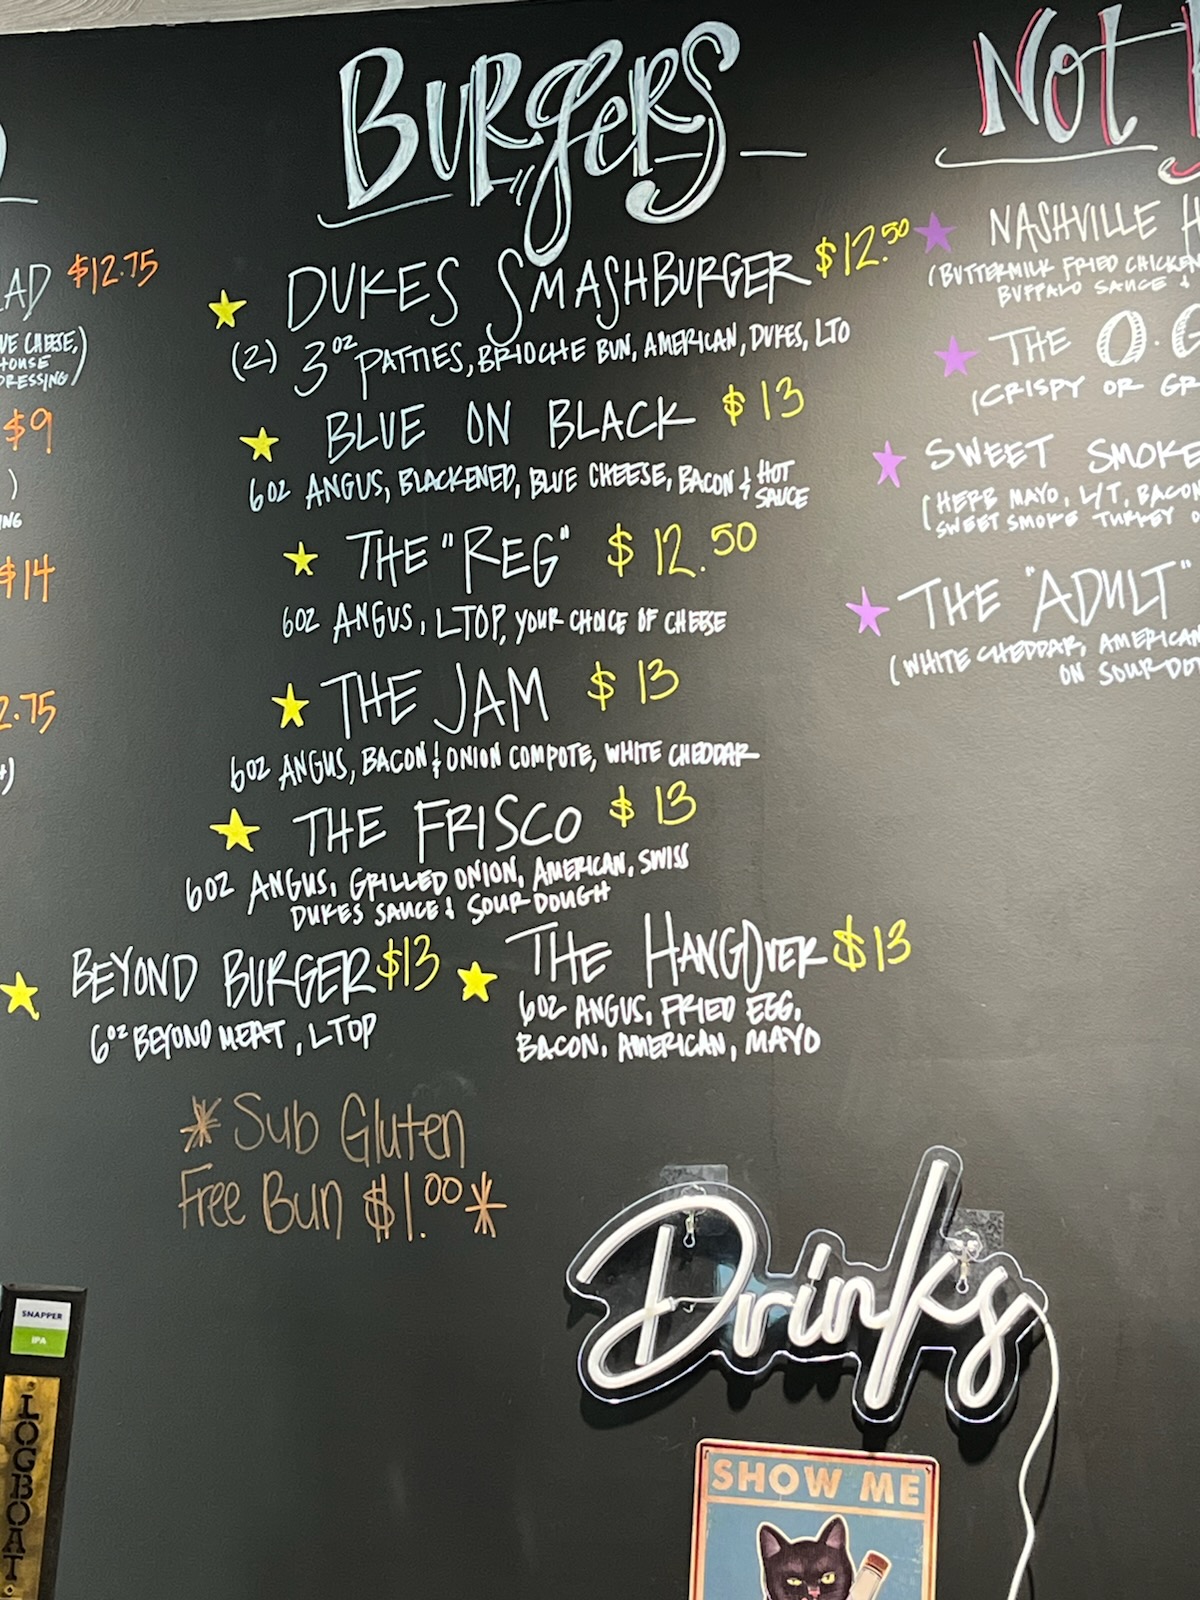 BURGERS
DUKES SMASHBURGER $12.50
(2) 3oz PATTIES, BRIOCHE BUN, AMERICAN, DUKES, LTO
BLUE ON BLACK $13
6oz ANGUS, BLACKENED, BLUE CHEESE, BACON & HOT SAUCE
THE "REG" $12.50
6oz ANGUS, LTOP, YOUR CHOICE OF CHEESE
THE JAM $13
6oz ANGUS, BACON & ONION COMPOTE, WHITE CHEDDAR
THE FRISCO $13
6oz ANGUS, GRILLED ONION, AMERICAN, SWISS
DUKES SAUCE & SOURDOUGH
BEYOND BURGER $13
6oz BEYOND MEAT, LTOP
THE HANGOVER $13
6oz ANGUS, FRIED EGG,
BACON, AMERICAN, MAYO
*Sub Gluten
Free Bun $1.00*
$12.75
CHEESE,
HOUSE
DRESSING)
$9
$14
NOT
NASHVILLE
(BUTTERMILK FRIED CHICKEN
BUFFALO SAUCE &
THE O.G
(CRISPY OR
SWEET SMOKE
(HERB MAYO, L/T, BACON
SWEET SMOKE TURKEY
THE "ADULT"
(WHITE CHEDDAR, AMERICAN
ON
Drinks
SHOW ME
SNAPPER
IPA
LOGBOAT